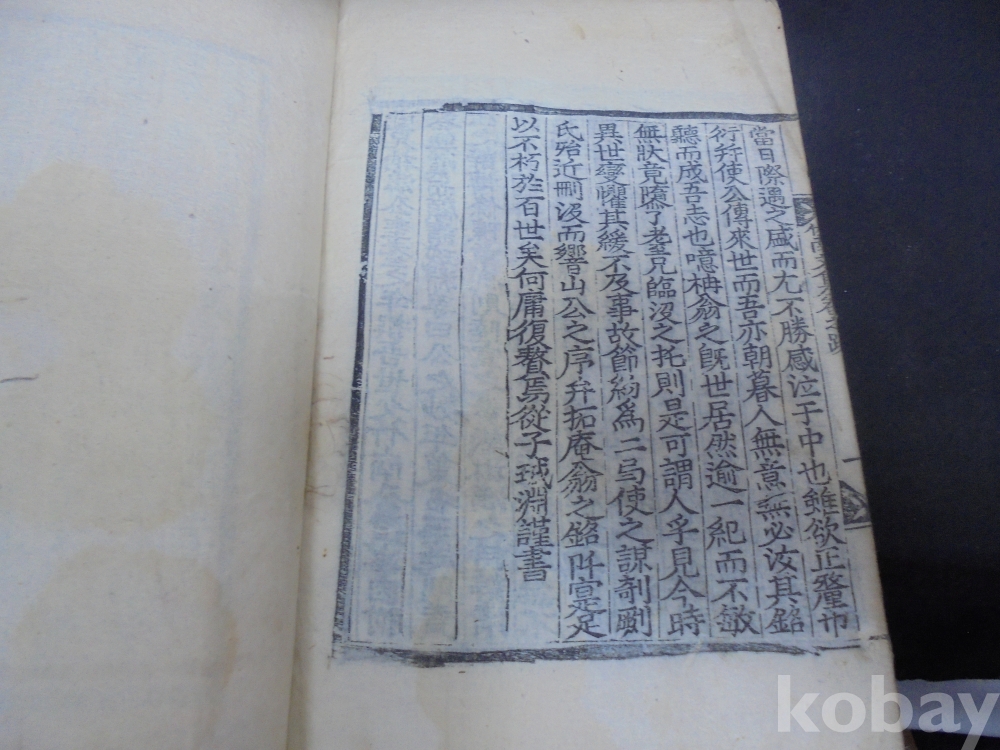 當日際遇之盛而尤不勝感泣于中也雖欲正釐
衍我使公傳來世而吾亦朝暮人無意無必汝其銘
聽而成吾志也噫栴翁之旣世居然逾一紀而不敏
無狀竟隳了老兄臨沒之托則是可謂人乎見今時
異世變懼其緩不及事故節約爲二弓使之謀剞劂
氏殆近刪沒而響山公之序弁拓庵翁之銘阡寔足
以不朽於百世矣何庸復贅焉從子珬淵謹書
kobay